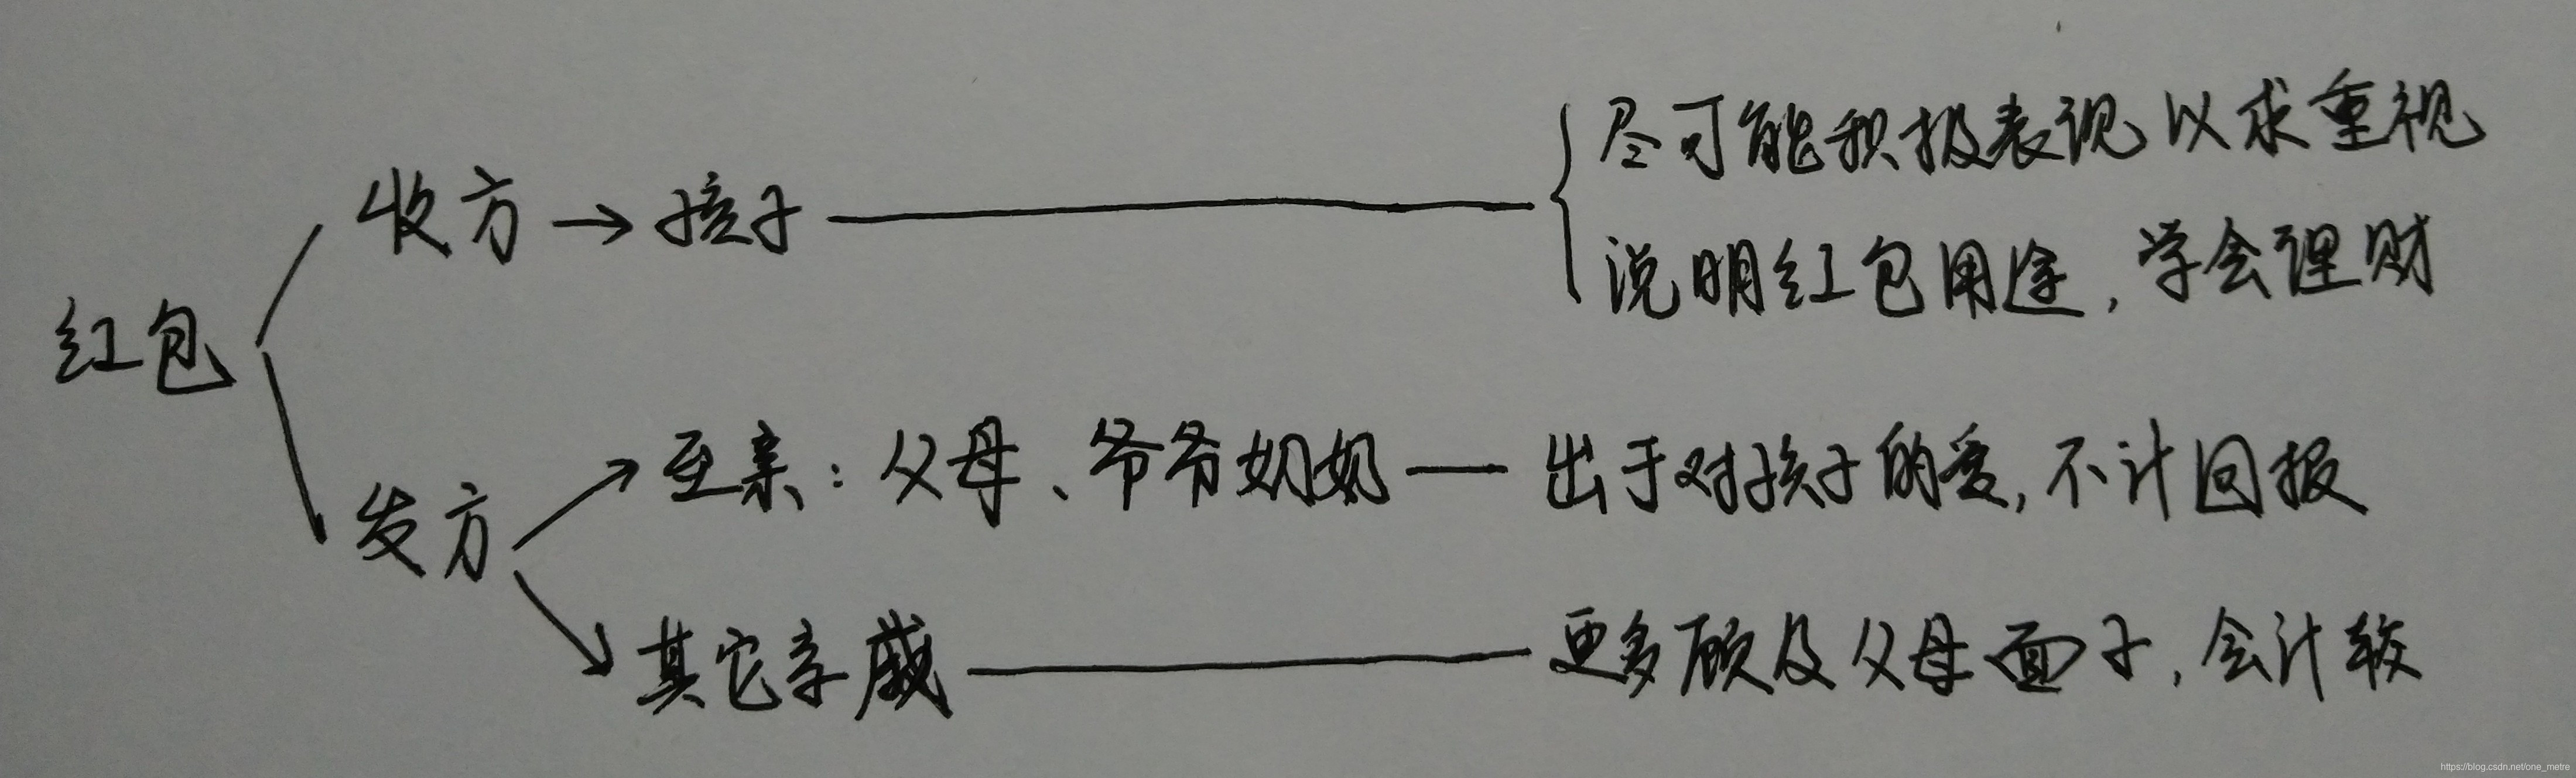 尽可能积极表现以求重视
收方→孩子
说明红包用途,学会理财
红包
至亲:父母、爷爷奶奶——出于对孩子的爱,不计回报
发方
其它亲戚——更多顾及父母面子,会计较
https://blog.csdn.net/one_metre